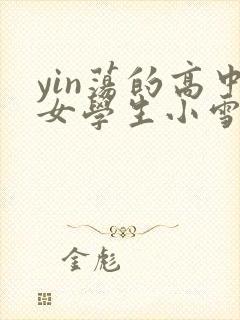 yin蕩的高中
女學生小雪
金彪